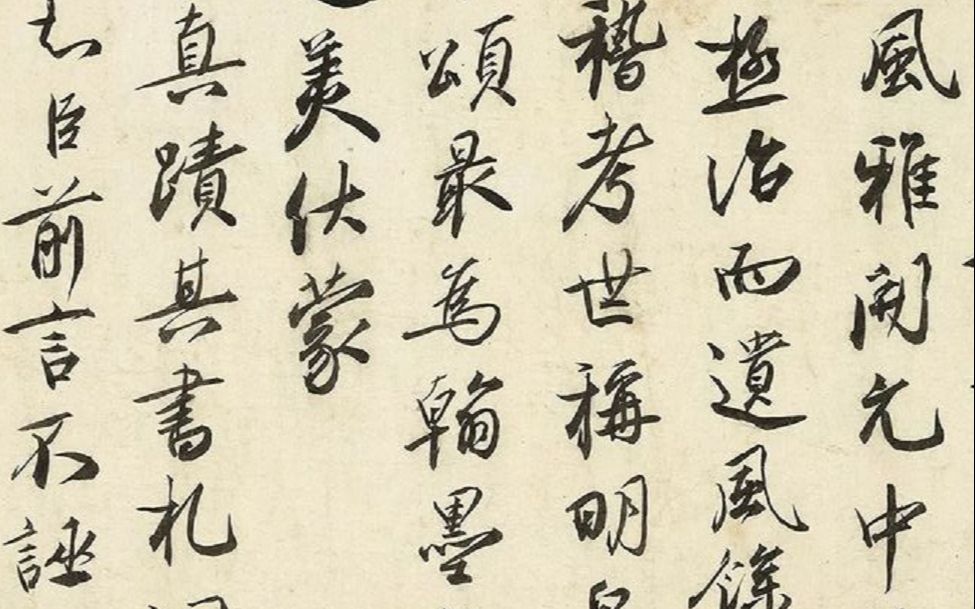 風雅開元中
極治而遺風餘
稽考世稱明皇
頌最為翰墨
美伏蒙
真蹟其書札
知臣前言不誣